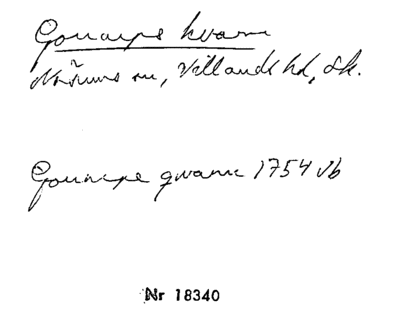 Gonarps kvarn
Näsums sn, Villands hd, Sk.
Gonarpe qvarn 1754 Jb
Nr 18340